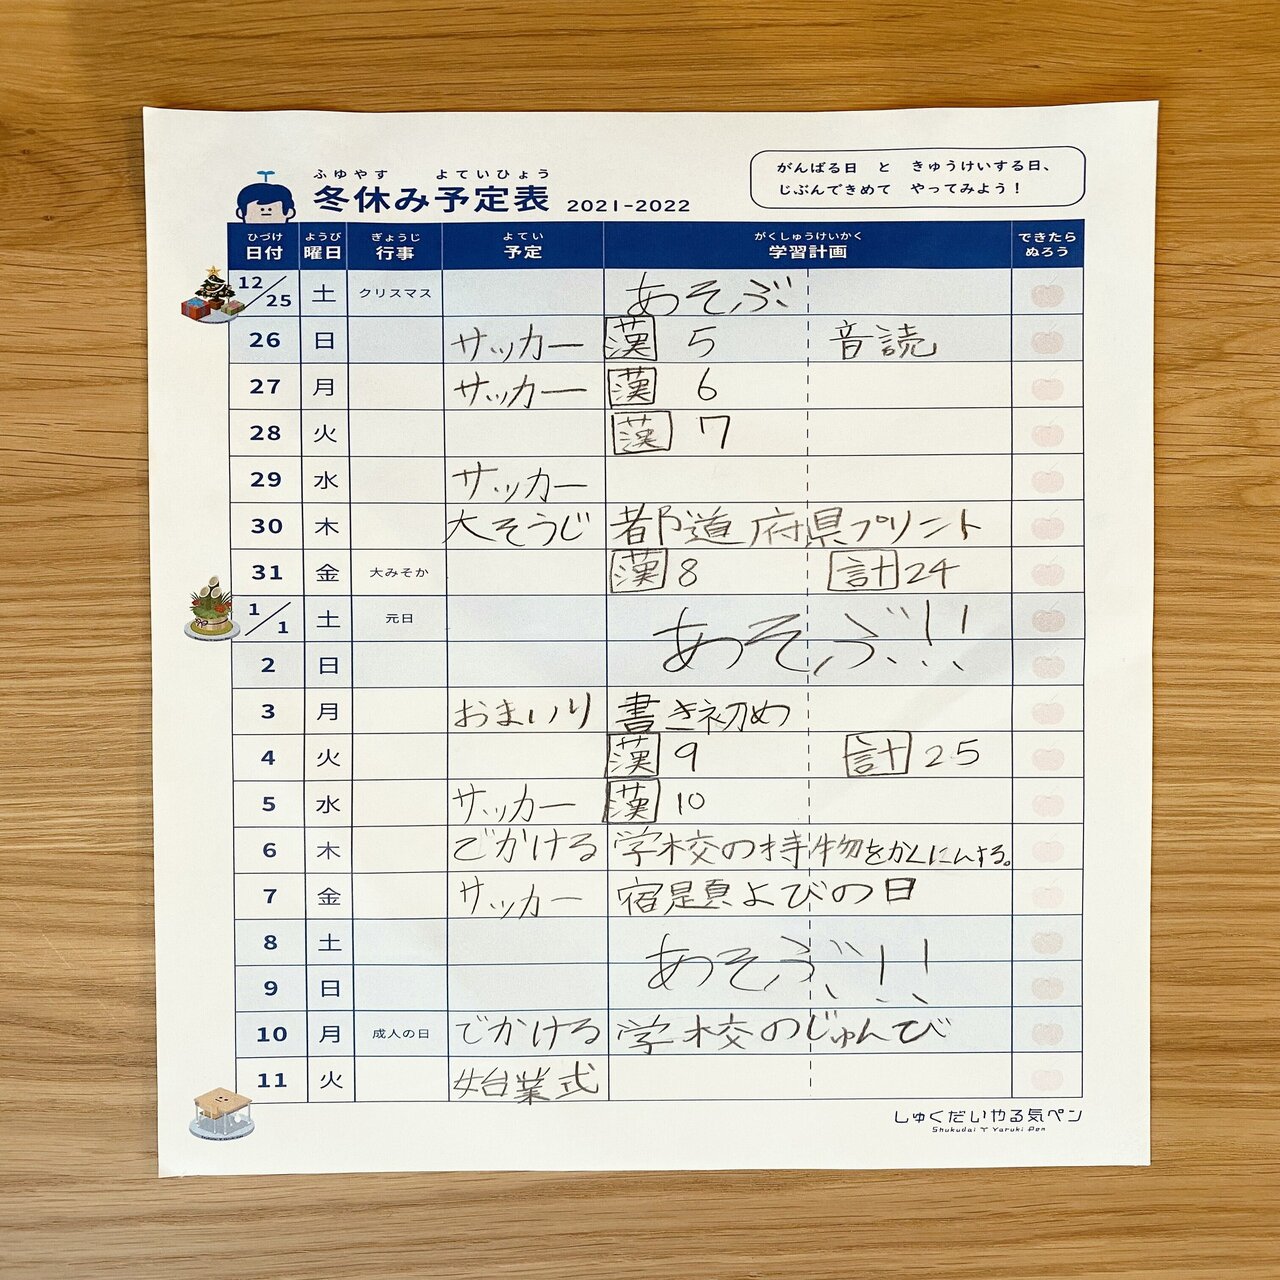 ふゆやす よていひょう
冬休み予定表 2021-2022
がんばる日 と きゅうけいする日、
じぶんできめて やってみよう！
ひづけ ようび ぎょうじ よてい がくしゅうけいかく できたら
日付 曜日 行事 予定 学習計画 ぬろう
12/25 土 クリスマス あそぶ
26 日 サッカー 漢 5 音読
27 月 サッカー 漢 6
28 火 漢 7
29 水 サッカー
30 木 大そうじ 都道府県プリント
31 金 大みそか 漢 8 計 24
1/1 土 元日 あそぶ!!
2 日
3 月 おまいり 書き初め
4 火 漢 9 計 25
5 水 サッカー 漢 10
6 木 でかける 学校の持ち物をかくにんする。
7 金 サッカー 宿題よびの日
8 土 あそぶ!!
9 日
10 月 成人の日 でかける 学校のじゅんび
11 火 始業式
しゅくだいやる気ペン
Shukudai Yaruki Pen